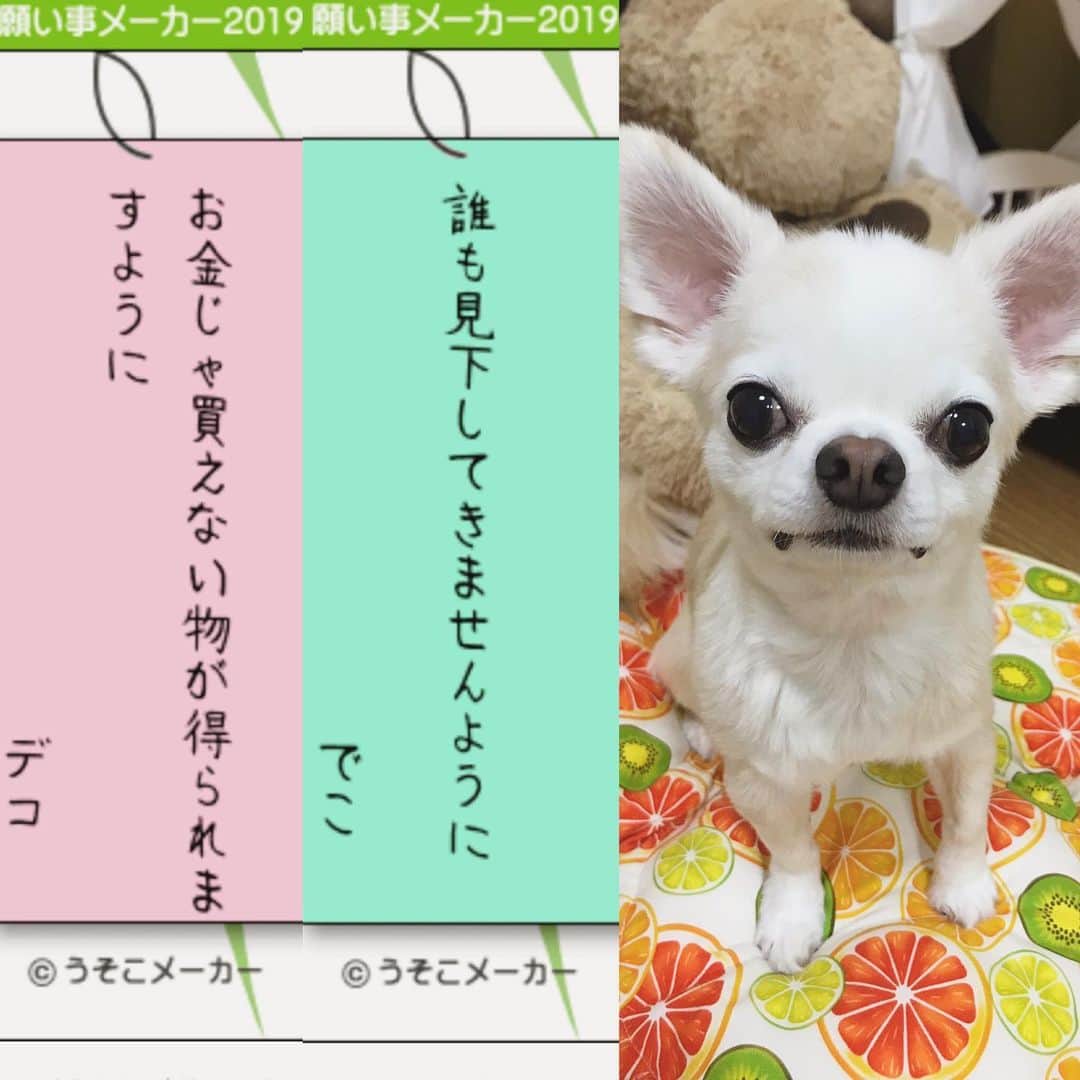 願い事メーカー2019
お金じゃ買えない物が得られま
すように
デコ
© うそこメーカー
願い事メーカー2019
誰も見下してきませんように
でこ
© うそこメーカー